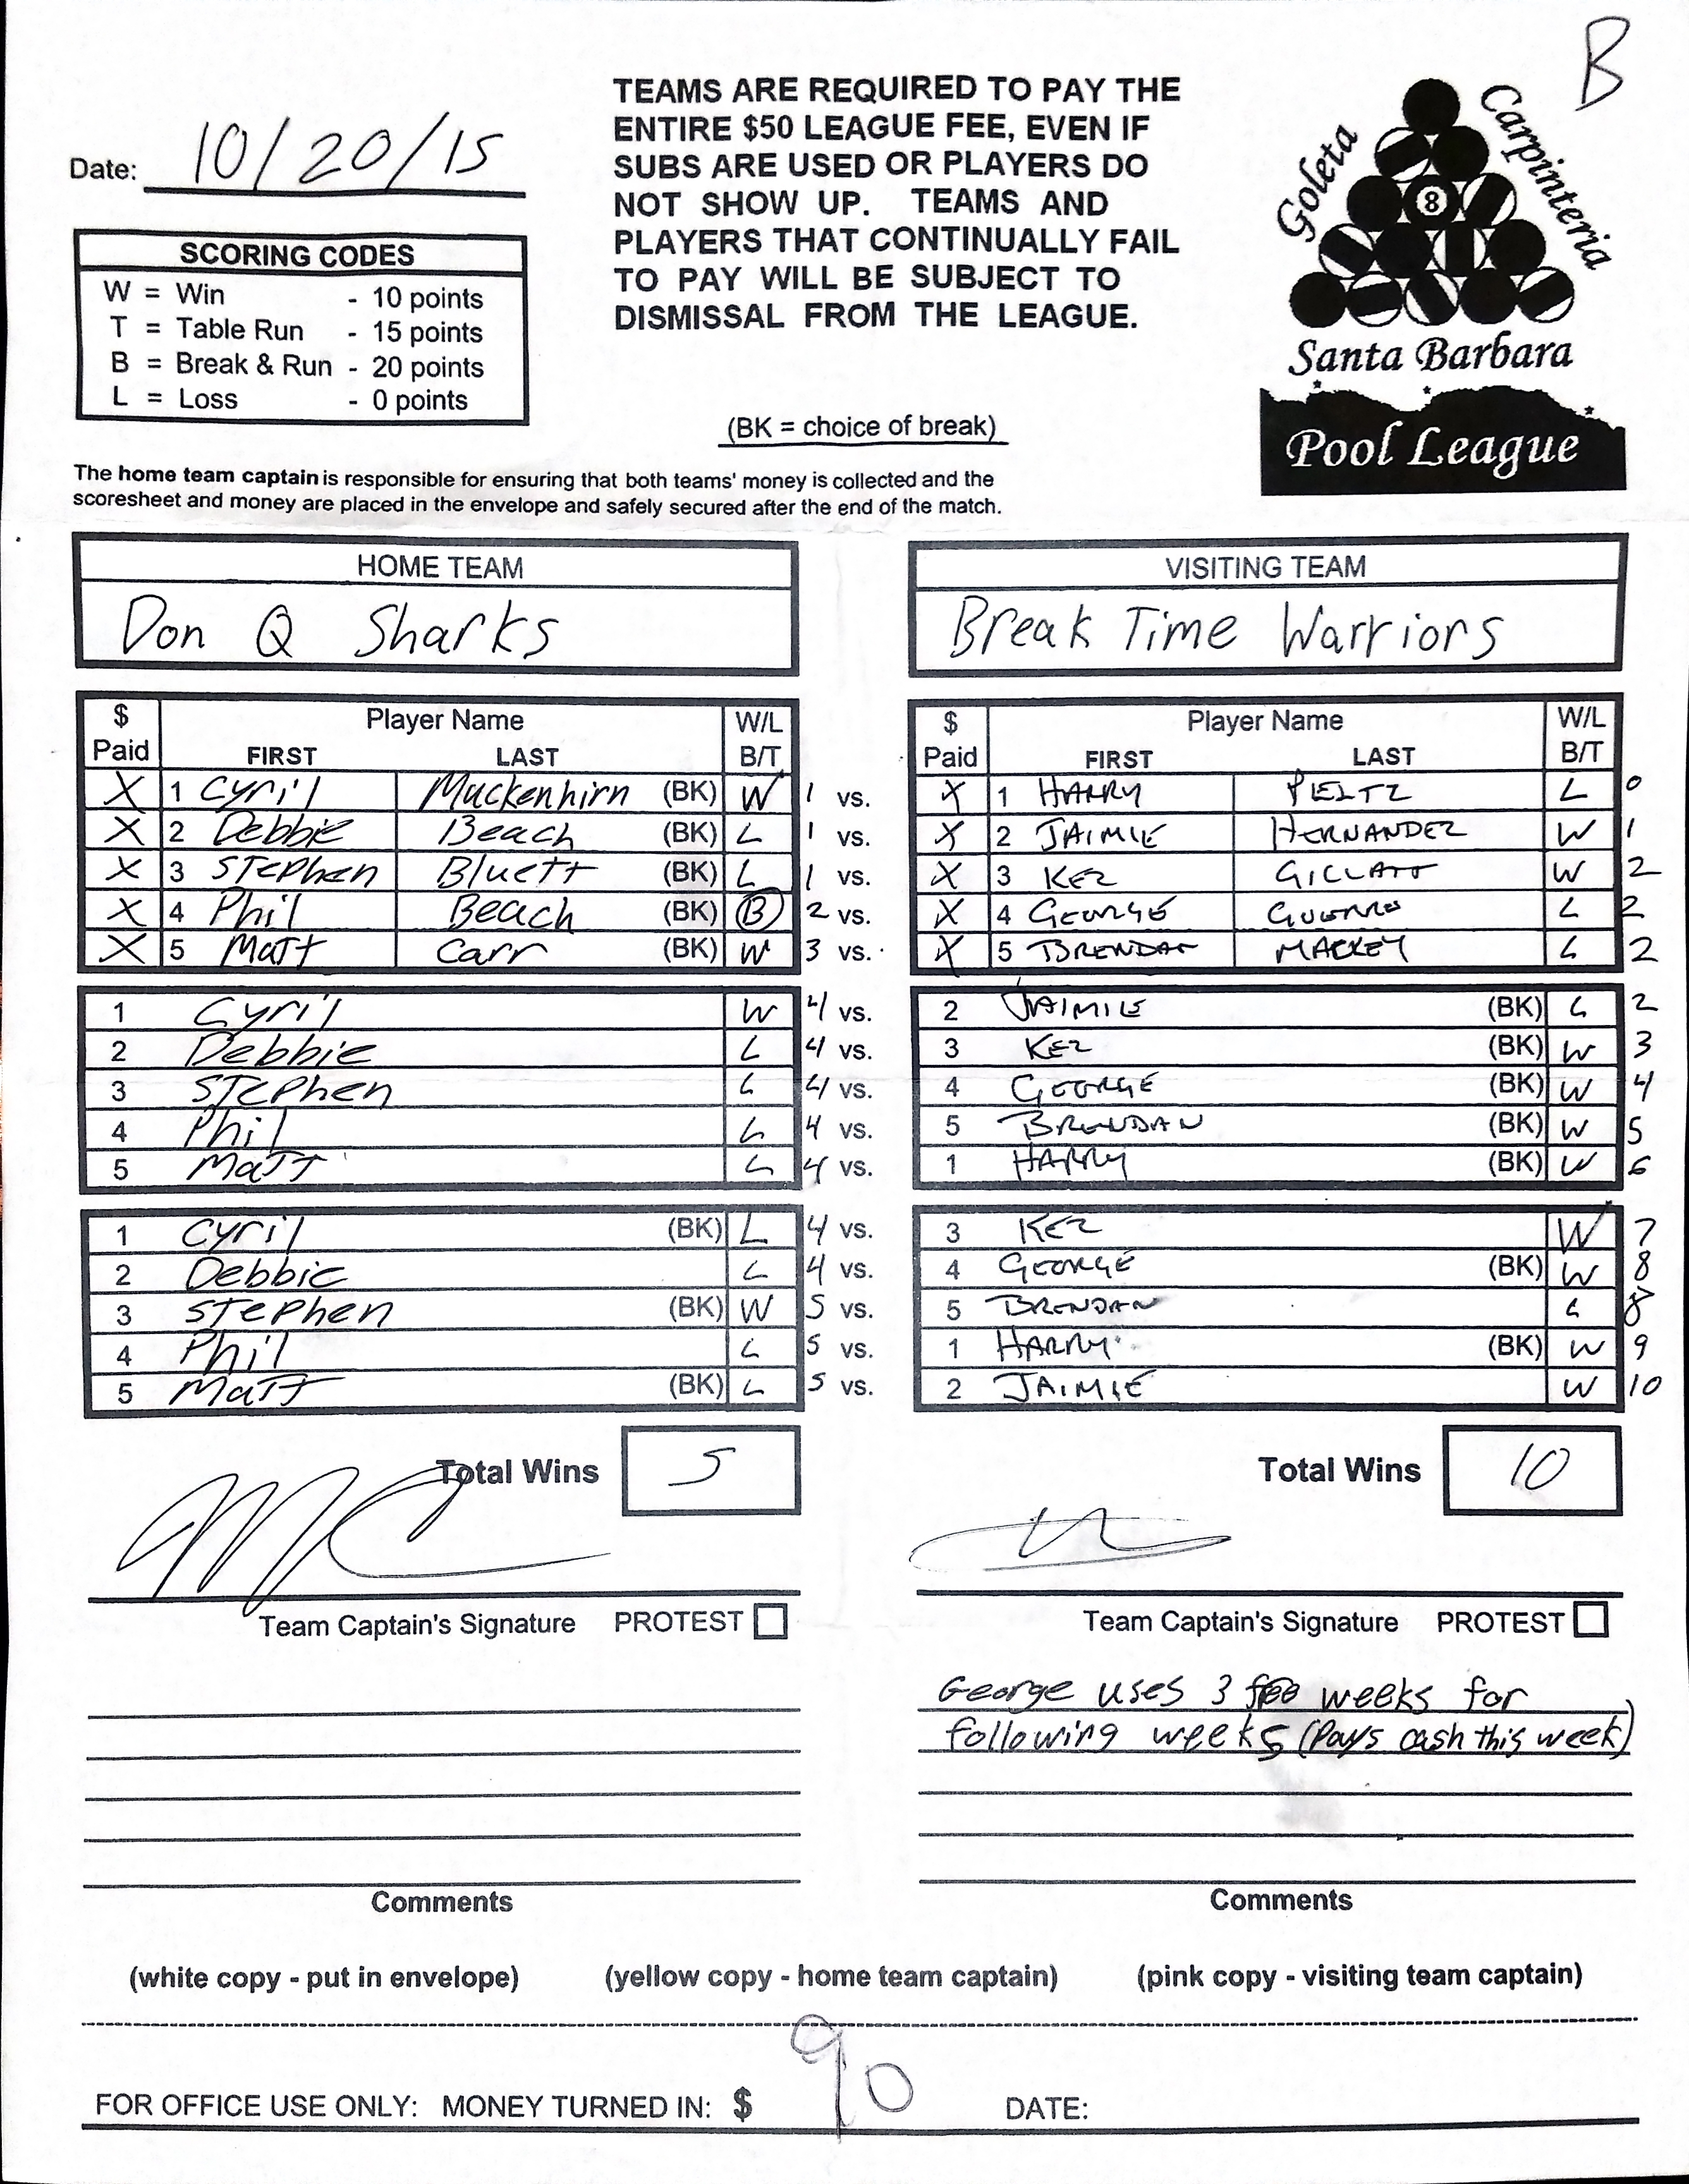 B
Date: 10/20/15
TEAMS ARE REQUIRED TO PAY THE
ENTIRE $50 LEAGUE FEE, EVEN IF
SUBS ARE USED OR PLAYERS DO
NOT SHOW UP. TEAMS AND
PLAYERS THAT CONTINUALLY FAIL
TO PAY WILL BE SUBJECT TO
DISMISSAL FROM THE LEAGUE.
Goleta
Carpinteria
8
Santa Barbara
Pool League
SCORING CODES
W = Win - 10 points
T = Table Run - 15 points
B = Break & Run - 20 points
L = Loss - 0 points
(BK = choice of break)
The home team captain is responsible for ensuring that both teams' money is collected and the
scoresheet and money are placed in the envelope and safely secured after the end of the match.
HOME TEAM VISITING TEAM
Don Q Sharks Break Time Warriors
$ Player Name W/L $ Player Name W/L
Paid FIRST LAST B/T Paid FIRST LAST B/T
X 1 Cyril Muckenhirn (BK) W 1 vs. X 1 HARRY PELTZ L 0
X 2 Debbie Beach (BK) L 1 vs. X 2 JAIMIE HERNANDEZ W 1
X 3 Stephen Bluett (BK) L 1 vs. X 3 KEZ GILLATT W 2
X 4 Phil Beach (BK) B 2 vs. X 4 GEORGE L 2
X 5 Matt Carr (BK) W 3 vs. X 5 BRENDAN MACKEY L 2
1 Cyril W 4 vs. 2 JAIMIE (BK) L 2
2 Debbie L 4 vs. 3 KEZ (BK) W 3
3 Stephen L 4 vs. 4 GEORGE (BK) W 4
4 Phil L 4 vs. 5 BRENDAN (BK) W 5
5 Matt L 4 vs. 1 HARRY (BK) W 6
1 Cyril (BK) L 4 vs. 3 KEZ W 7
2 Debbie L 4 vs. 4 GEORGE (BK) W 8
3 Stephen (BK) W 5 vs. 5 BRENDAN L 8
4 Phil L 5 vs. 1 HARRY (BK) W 9
5 Matt (BK) L 5 vs. 2 JAIMIE W 10
Total Wins 5 Total Wins 10
Team Captain's Signature PROTEST Team Captain's Signature PROTEST
George uses 3 weeks for
following weeks (Pays cash this week)
Comments Comments
(white copy - put in envelope) (yellow copy - home team captain) (pink copy - visiting team captain)
FOR OFFICE USE ONLY: MONEY TURNED IN: $ 90 DATE: